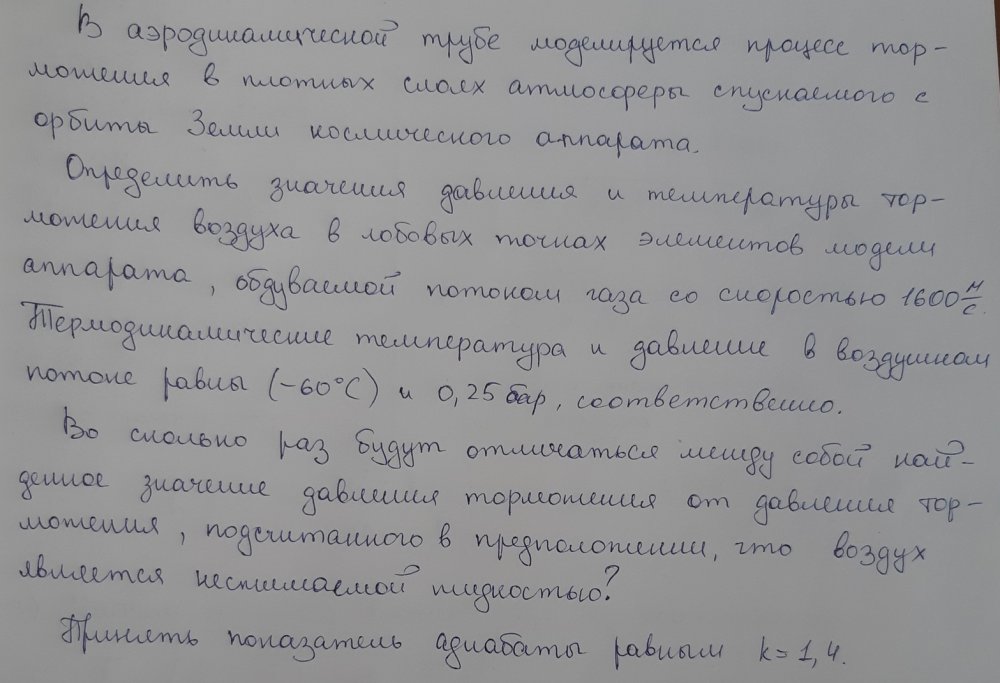 В аэродинамической трубе моделируется процесс тор-
можения в плотных слоях атмосферы спускаемого с
орбиты Земли космического аппарата.
Определить значения давления и температуры тор-
можения воздуха в лобовых точках элементов модели
аппарата, обдуваемой потоком газа со скоростью 1600 м/с.
Термодинамические температура и давление в воздушном
потоке равны (-60°С) и 0,25 бар, соответственно.
Во сколько раз будут отличаться между собой най-
денное значение давления торможения от давления тор-
можения, подсчитанного в предположении, что воздух
является несжимаемой жидкостью?
Принять показатель адиабаты равным k=1,4.